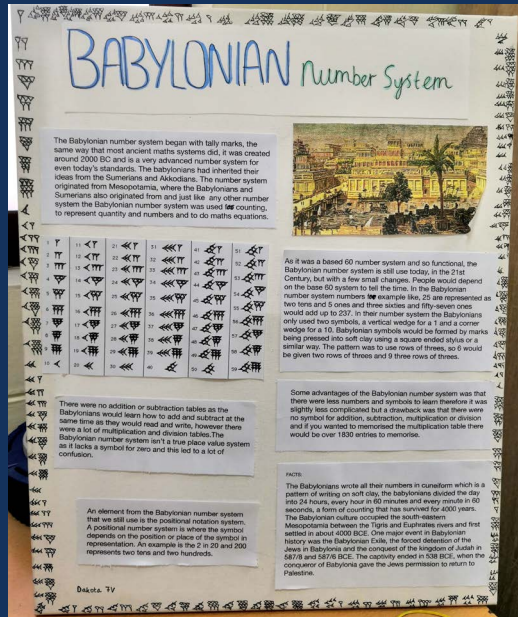 BABYLONIAN number System
The Babylonian number system began with tally marks, the
same way that most ancient maths systems did, it was created
around 2000 BC and is a very advanced number system for
even today's standards. The babylonians had inherited their
ideas from the Sumerians and Akkodians. The number system
originated from Mesopotamia, where the Babylonians and
Sumerians also originated from and just like any other number
system the Babylonian number system was used for counting,
to represent quantity and numbers and to do maths equations.
1 𒐕 11 21 31 41 51
2 12 22 32 42 52
3 13 23 33 43 53
4 14 24 34 44 54
5 15 25 35 45 55
6 16 26 36 46 56
7 17 27 37 47 57
8 18 28 38 48 58
9 19 29 39 49 59
10 20 30 40 50
As it was a based 60 number system and so functional, the
Babylonian number system is still use today, in the 21st
Century, but with a few small changes. People would depend
on the base 60 system to tell the time. In the Babylonian
number system numbers for example like, 25 are represented as
two tens and 5 ones and three sixties and fifty-seven ones
would add up to 237. In their number system the Babylonians
only used two symbols, a vertical wedge for a 1 and a corner
wedge for a 10. Babylonian symbols would be formed by marks
being pressed into soft clay using a square ended stylus or a
similar way. The pattern was to use rows of threes, so 6 would
be given two rows of threes and 9 three rows of threes.
There were no addition or subtraction tables as the
Babylonians would learn how to add and subtract at the
same time as they would read and write, however there
were a lot of multiplication and division tables.The
Babylonian number system isn't a true place value system
as it lacks a symbol for zero and this led to a lot of
confusion.
Some advantages of the Babylonian number system was that
there were less numbers and symbols to learn therefore it was
slightly less complicated but a drawback was that there were
no symbol for addition, subtraction, multiplication or division
and if you wanted to memorised the multiplication table there
would be over 1830 entries to memorise.
An element from the Babylonian number system
that we still use is the positional notation system.
A positional number system is where the symbol
depends on the position or place of the symbol in
representation. An example is the 2 in 20 and 200
represents two tens and two hundreds.
FACTS:
The Babylonians wrote all their numbers in cuneiform which is a
pattern of writing on soft clay, the babylonians divided the day
into 24 hours, every hour in 60 minutes and every minute in 60
seconds, a form of counting that has survived for 4000 years.
The Babylonian culture occupied the south-eastern
Mesopotamia between the Tigris and Euphrates rivers and first
settled in about 4000 BCE. One major event in Babylonian
history was the Babylonian Exile, the forced detention of the
Jews in Babylonia and the conquest of the kingdom of Judah in
587/8 and 587/6 BCE. The captivity ended in 538 BCE, when the
conqueror of Babylonia gave the Jews permission to return to
Palestine.
Dakota 7V